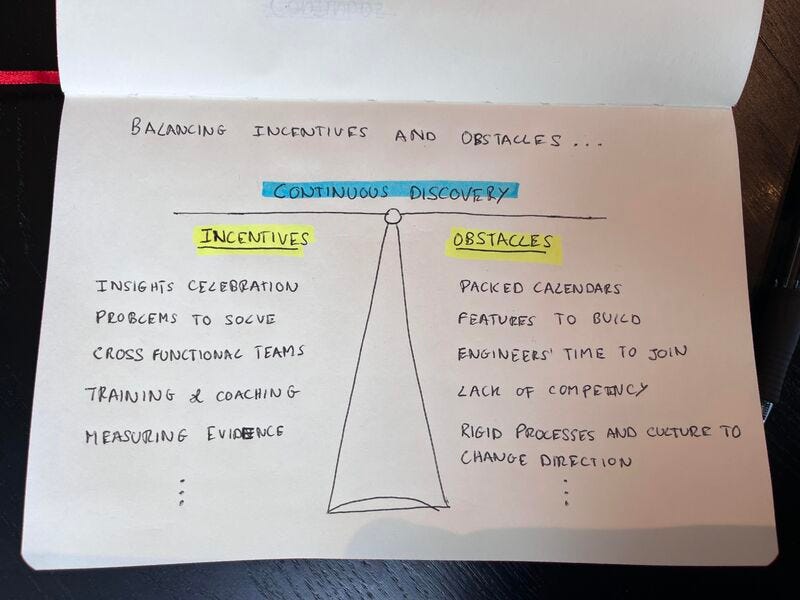 BALANCING INCENTIVES AND OBSTACLES...
CONTINUOUS DISCOVERY
INCENTIVES
INSIGHTS CELEBRATION
PROBLEMS TO SOLVE
CROSS FUNCTIONAL TEAMS
TRAINING & COACHING
MEASURING EVIDENCE
OBSTACLES
PACKED CALENDARS
FEATURES TO BUILD
ENGINEERS' TIME TO JOIN
LACK OF COMPETENCY
RIGID PROCESSES AND CULTURE TO
CHANGE DIRECTION